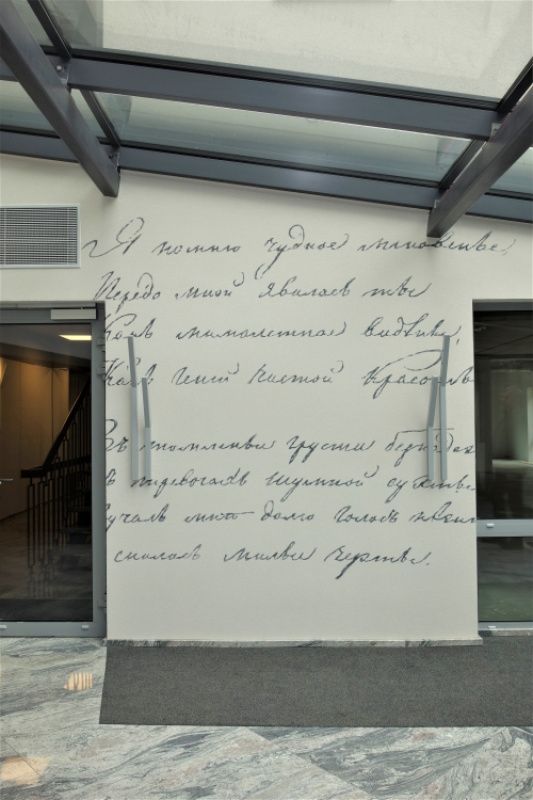 Я помню чудное мгновенье,
Передо мной явилась ты
Какъ мимолетное видѣнье,
Какъ Геній чистой Красоты
Въ томленьи грусти безнадеж
въ тревогахъ шумной суеты
учалъ мнѣ долго голосъ нѣжн
снились милыя черты.